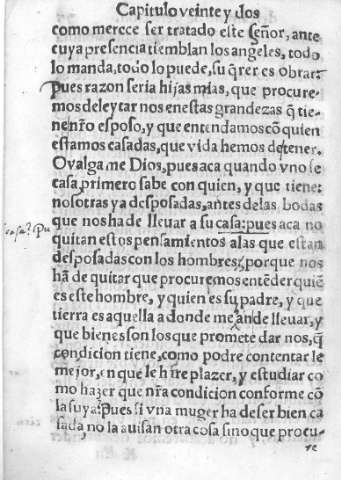 Capitulo veinte y dos
como merece ser tratado este señor, ante
cuya presencia tiemblan los angeles, todo
lo manda, todo lo puede, su q̃rer es obrar:
pues razon seria hijas mias, que procure-
mos deleytar nos en estas grandezas q̃ tie-
ne nr̃o esposo, y que entendamos cõ quien
estamos casadas, que vida hemos de tener.
O valgame Dios, pues aca quando vno se
casa, primero sabe con quien, y que tiene:
nosotras ya desposadas, antes de las bodas
que nos ha de lleuar a su casa: pues aca no
quitan estos pensamientos a las que estan
desposadas con los hombres, porque nos
hã de quitar que procuremos entẽder quiẽ
es este hombre, y quien es su padre, y que
tierra es aquella a donde me ande lleuar, y
que bienes son los que promete dar nos, q̃
condicion tiene, como podre contentar le
mejor, en que le hare plazer, y estudiar co
mo hazer que nr̃a condicion conforme cõ
la suya? pues si vna muger ha de ser bien ca
sada, no la auisan otra cosa sino que procu-
re
casa? Pu